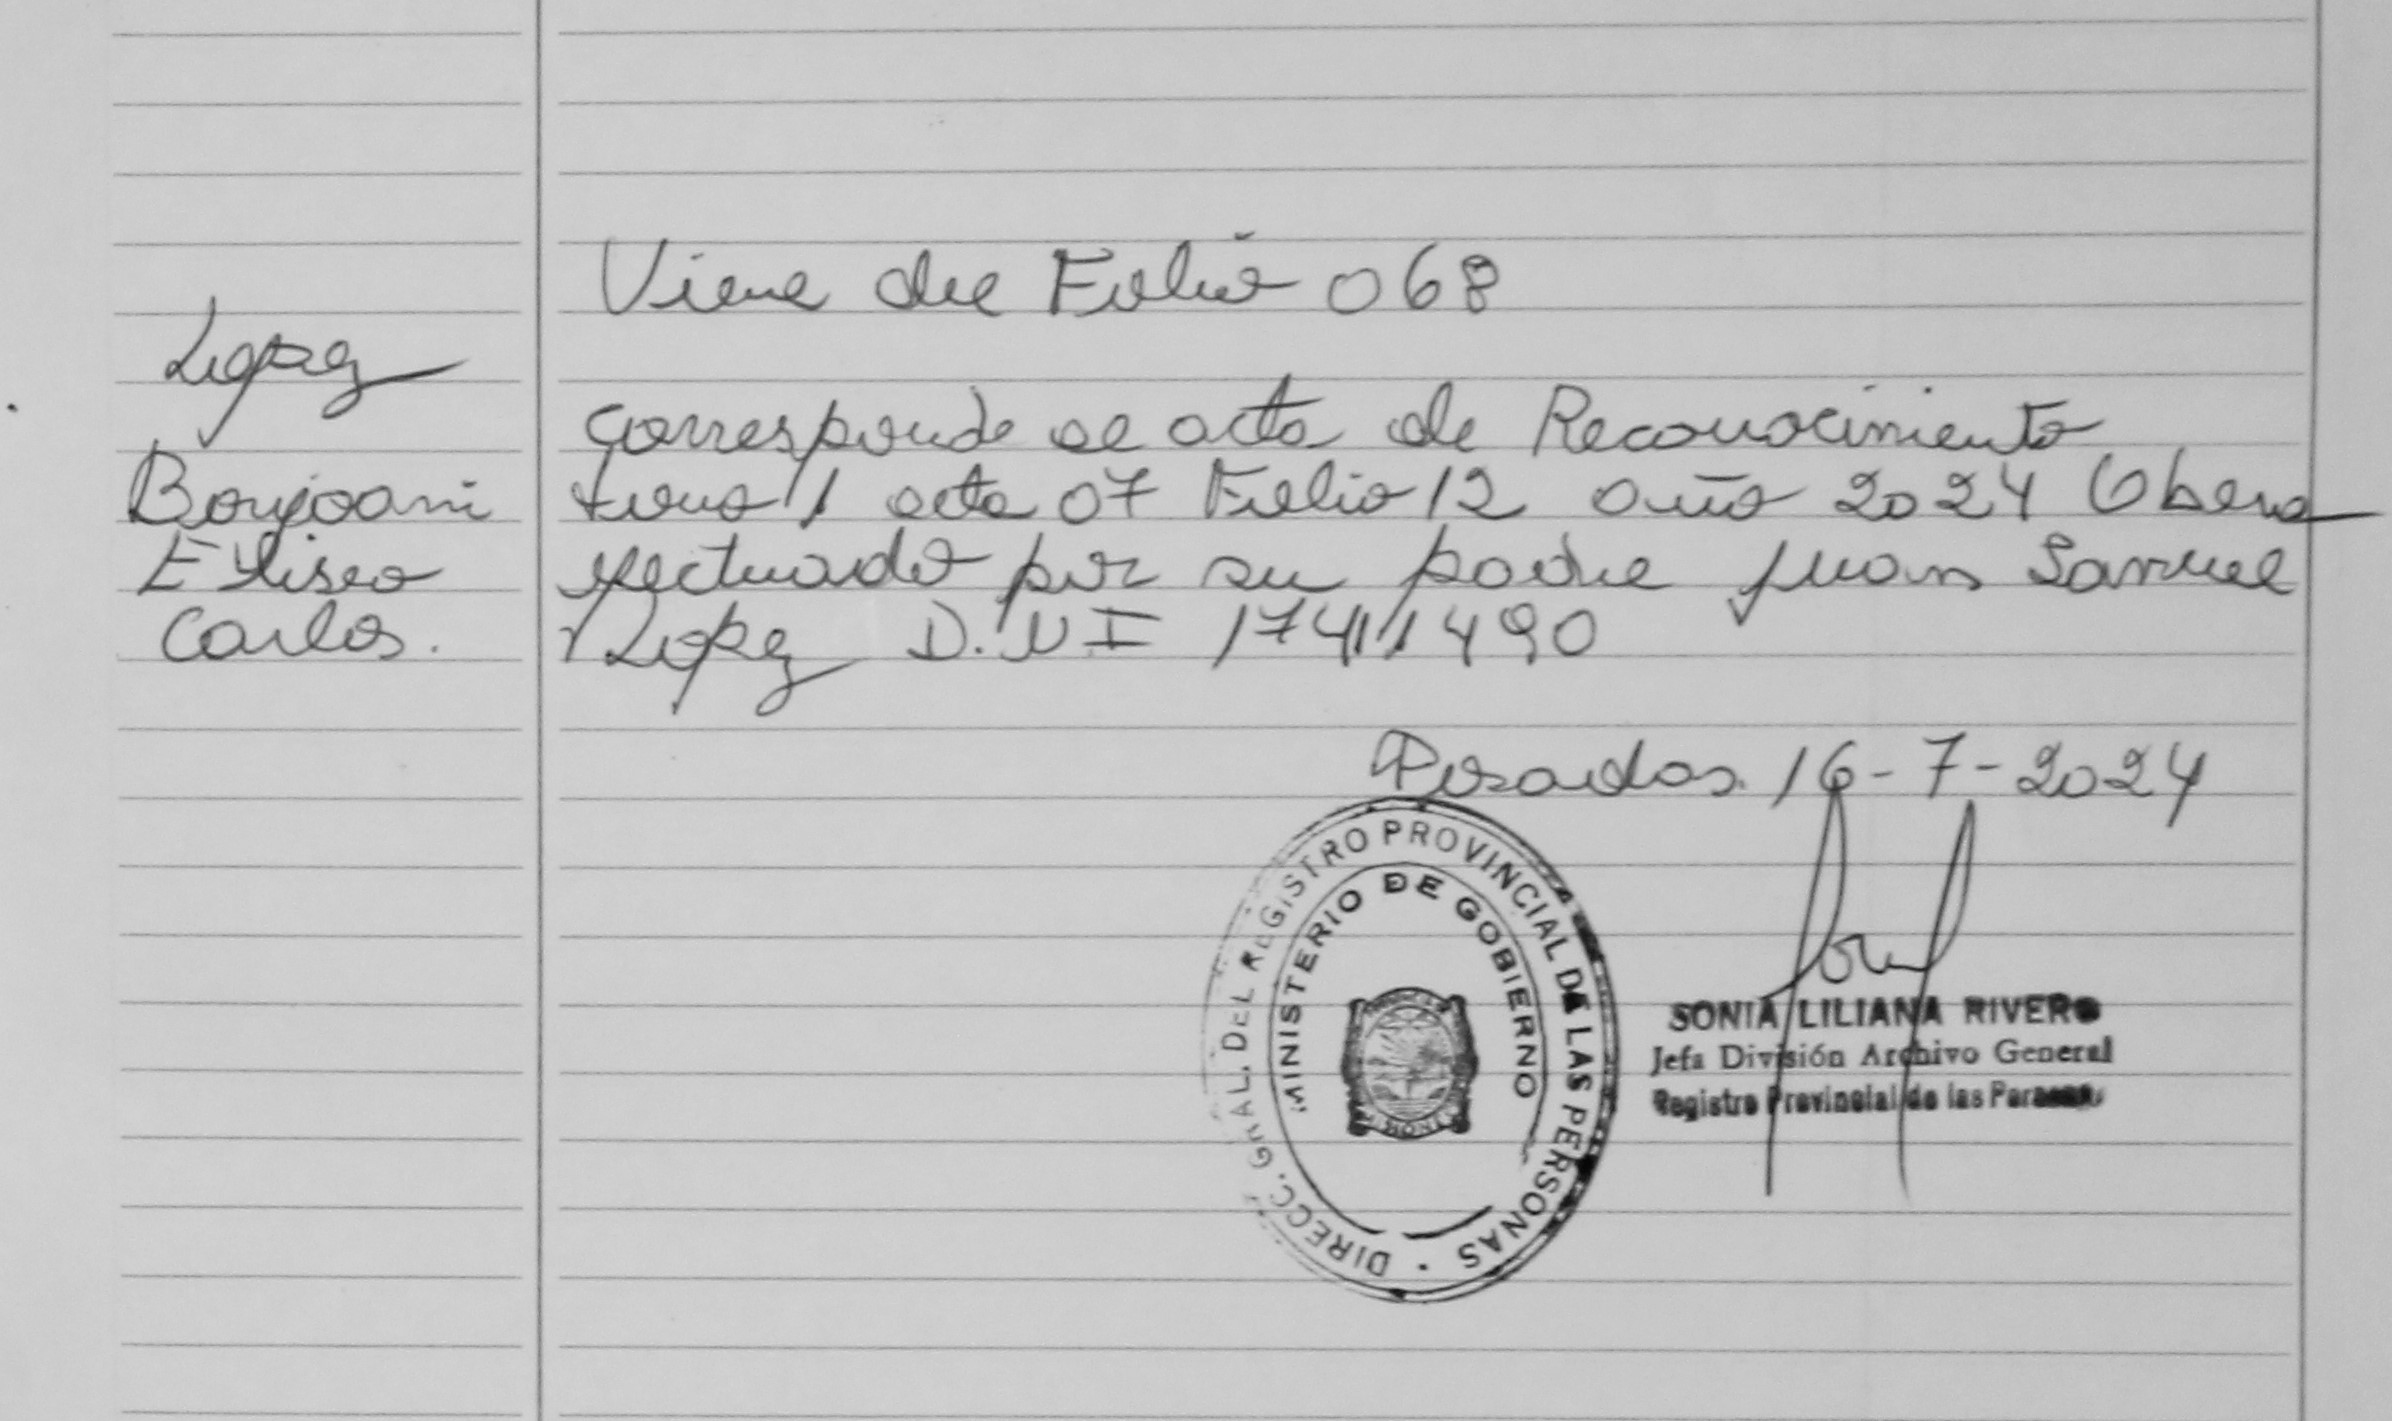 Viene de Folio 068
Lopez
Eliseo
Carlos.
corresponde al acta de Reconocimiento
tomo 1 acta 07 Folio 12 año 2024 Obera
efectuado por su padre Juan Samuel
Lopez D.N.I 17411490
Posadas 16-7-2024
DIRECC. GRAL. DEL REGISTRO PROVINCIAL DE LAS PERSONAS
MINISTERIO DE GOBIERNO
SONIA LILIANA RIVERO
Jefa División Archivo General
Registro Provincial de las Personas